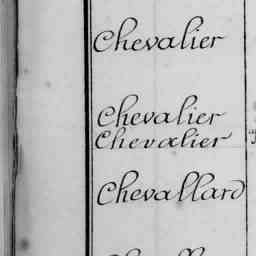 Chevalier
Chevalier
Chevalier
Chevallard